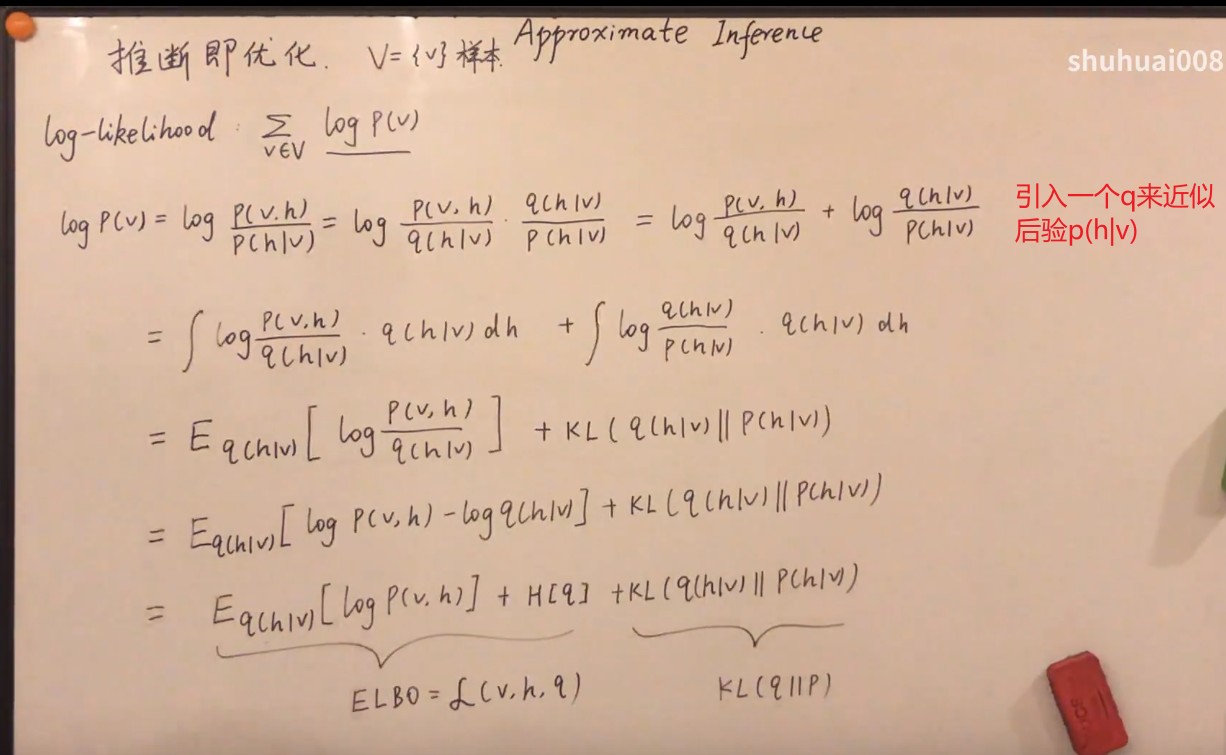 推断即优化. V={v}样本. Approximate Inference
shuhuai008
log-likelihood: ∑_{v∈V} log P(v)
log P(v) = log \frac{P(v,h)}{P(h|v)} = log \frac{P(v,h)}{q(h|v)} · \frac{q(h|v)}{P(h|v)} = log \frac{P(v,h)}{q(h|v)} + log \frac{q(h|v)}{P(h|v)}
引入一个q来近似
后验p(h|v)
= ∫ log \frac{P(v,h)}{q(h|v)} · q(h|v) dh + ∫ log \frac{q(h|v)}{P(h|v)} · q(h|v) dh
= E_{q(h|v)} [ log \frac{P(v,h)}{q(h|v)} ] + KL( q(h|v) || P(h|v))
= E_{q(h|v)} [ log P(v,h) - log q(h|v)] + KL( q(h|v) || P(h|v))
= E_{q(h|v)} [ log P(v,h)] + H[q] + KL( q(h|v) || P(h|v))
ELBO = ℒ(v,h,q) KL(q||P)